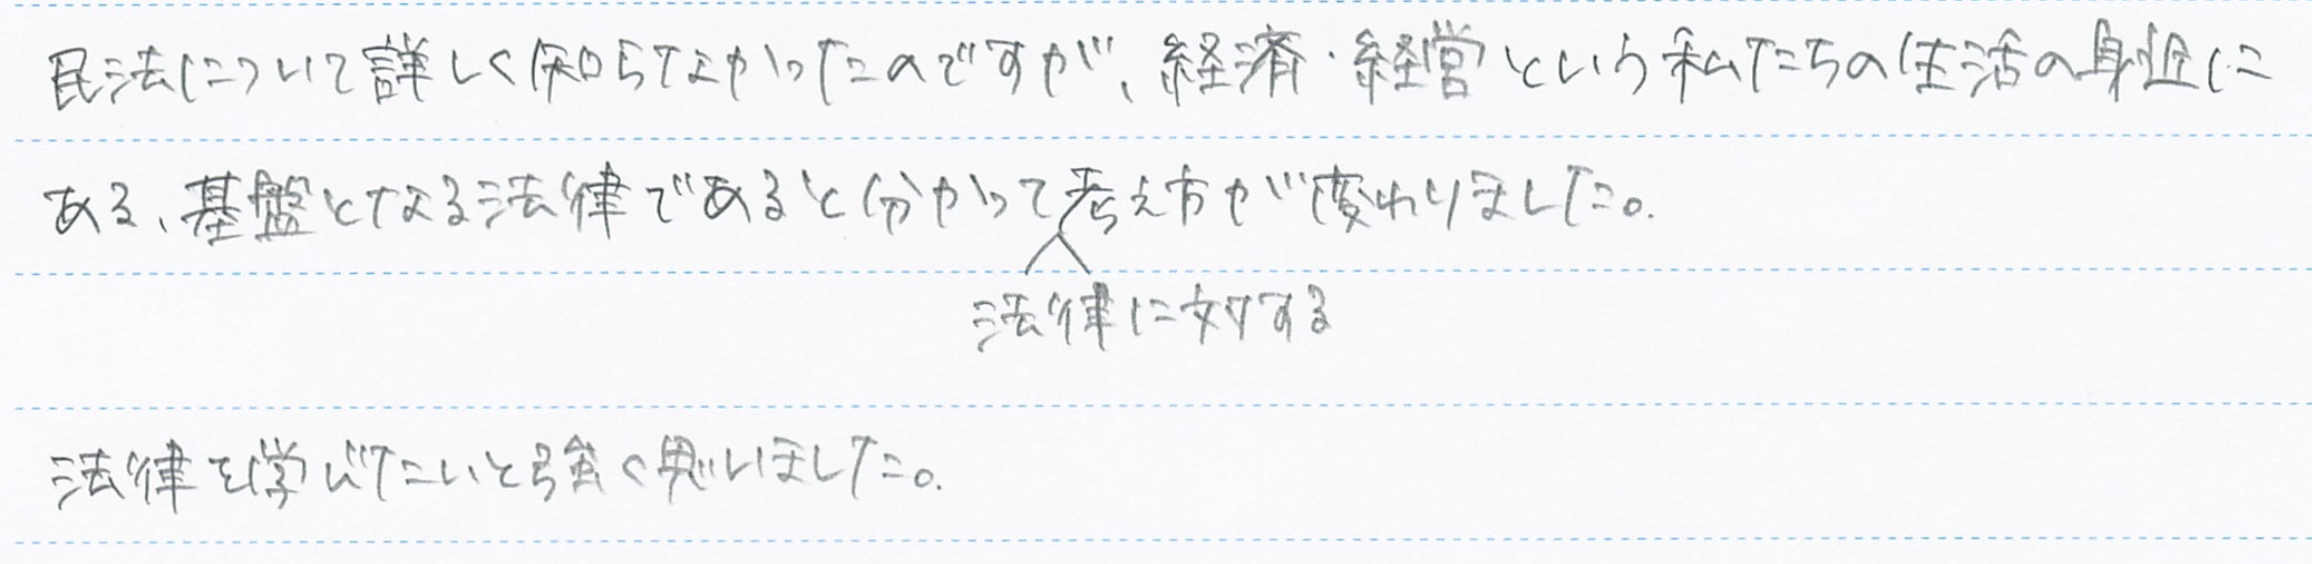 民法について詳しく知らなかったのですが、経済・経営という私たちの生活の身近に
ある、基盤となる法律であると分かって考え方が変わりました。
法律に対する
法律を学びたいと強く思いました。